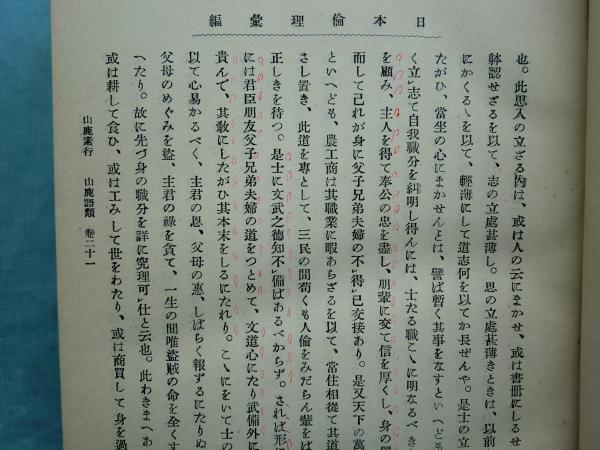 日本倫理彙編
也。此思入の立ざる內は、或は人の云にまかせ、或は書冊にしるせ
躰認せざるを以て、志の立處甚薄し。思の立處甚薄きときは、以前
にかくるゝを以て、輕薄にして道志何を以てか長ぜんや。是士の立
たがひ、當坐の心にまかせんとは、譬ば暫く其事をなすといへども
く立」志て自我職分を糾明し得んには、士たる職こゝに明なるべき
を顧み、主人を得て奉公の忠を盡し、朋輩に交て信を厚くし、身の獨
而して己れが身に父子兄弟夫婦の不」得」已交接あり。是又天下の萬
といへども、農工商は其職業に暇あらざるを以て、常住相從て其道
さし置き、此道を專として、三民の間苟くも人倫をみだらん輩をば
正しきを待つ。是士に文武之德知不」備ばあるべからず。されば形に
には君臣朋友父子兄弟夫婦の道をつとめて、文道心にたり武備外に
貴んで、其敎にしたがひ其本末をしるにたれり。こゝにをいて士の
以て心易かるべく、主君の恩、父母の惠、しばらく報ずるにたりぬ
父母のめぐみを盜、主君の祿を貪て、一生の間唯盜賊の命を全くす
へたり。故に先づ身の職分を詳に究理可」仕と云也。此わきまへあ
或は耕して食ひ、或は工みして世をわたり、或は商買して身を過
山鹿素行 山鹿語類 卷二十一